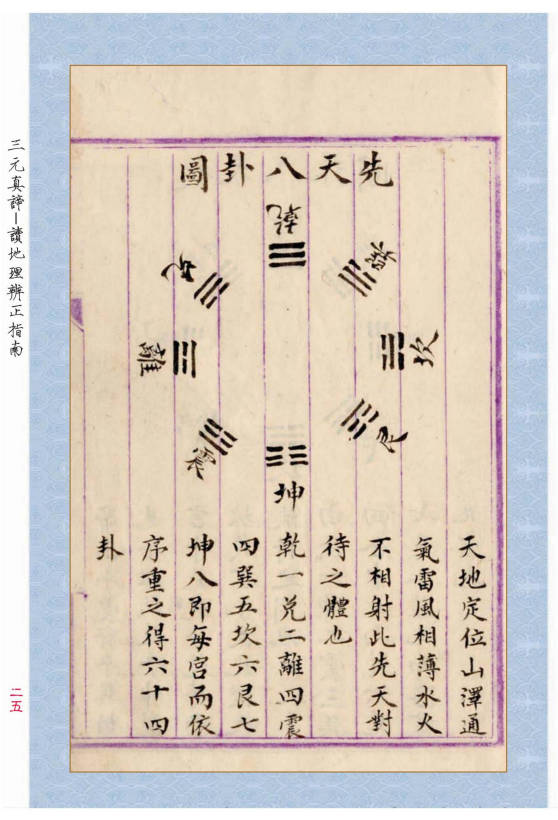 三元真諦—讀地理辨正指南
二五
先天八卦圖
乾
兌
巽
離
坎
震
艮
坤
天地定位山澤通
氣雷風相薄水火
不相射此先天對
待之體也
乾一兌二離四震
四巽五坎六艮七
坤八即每宮而依
序重之得六十四
卦